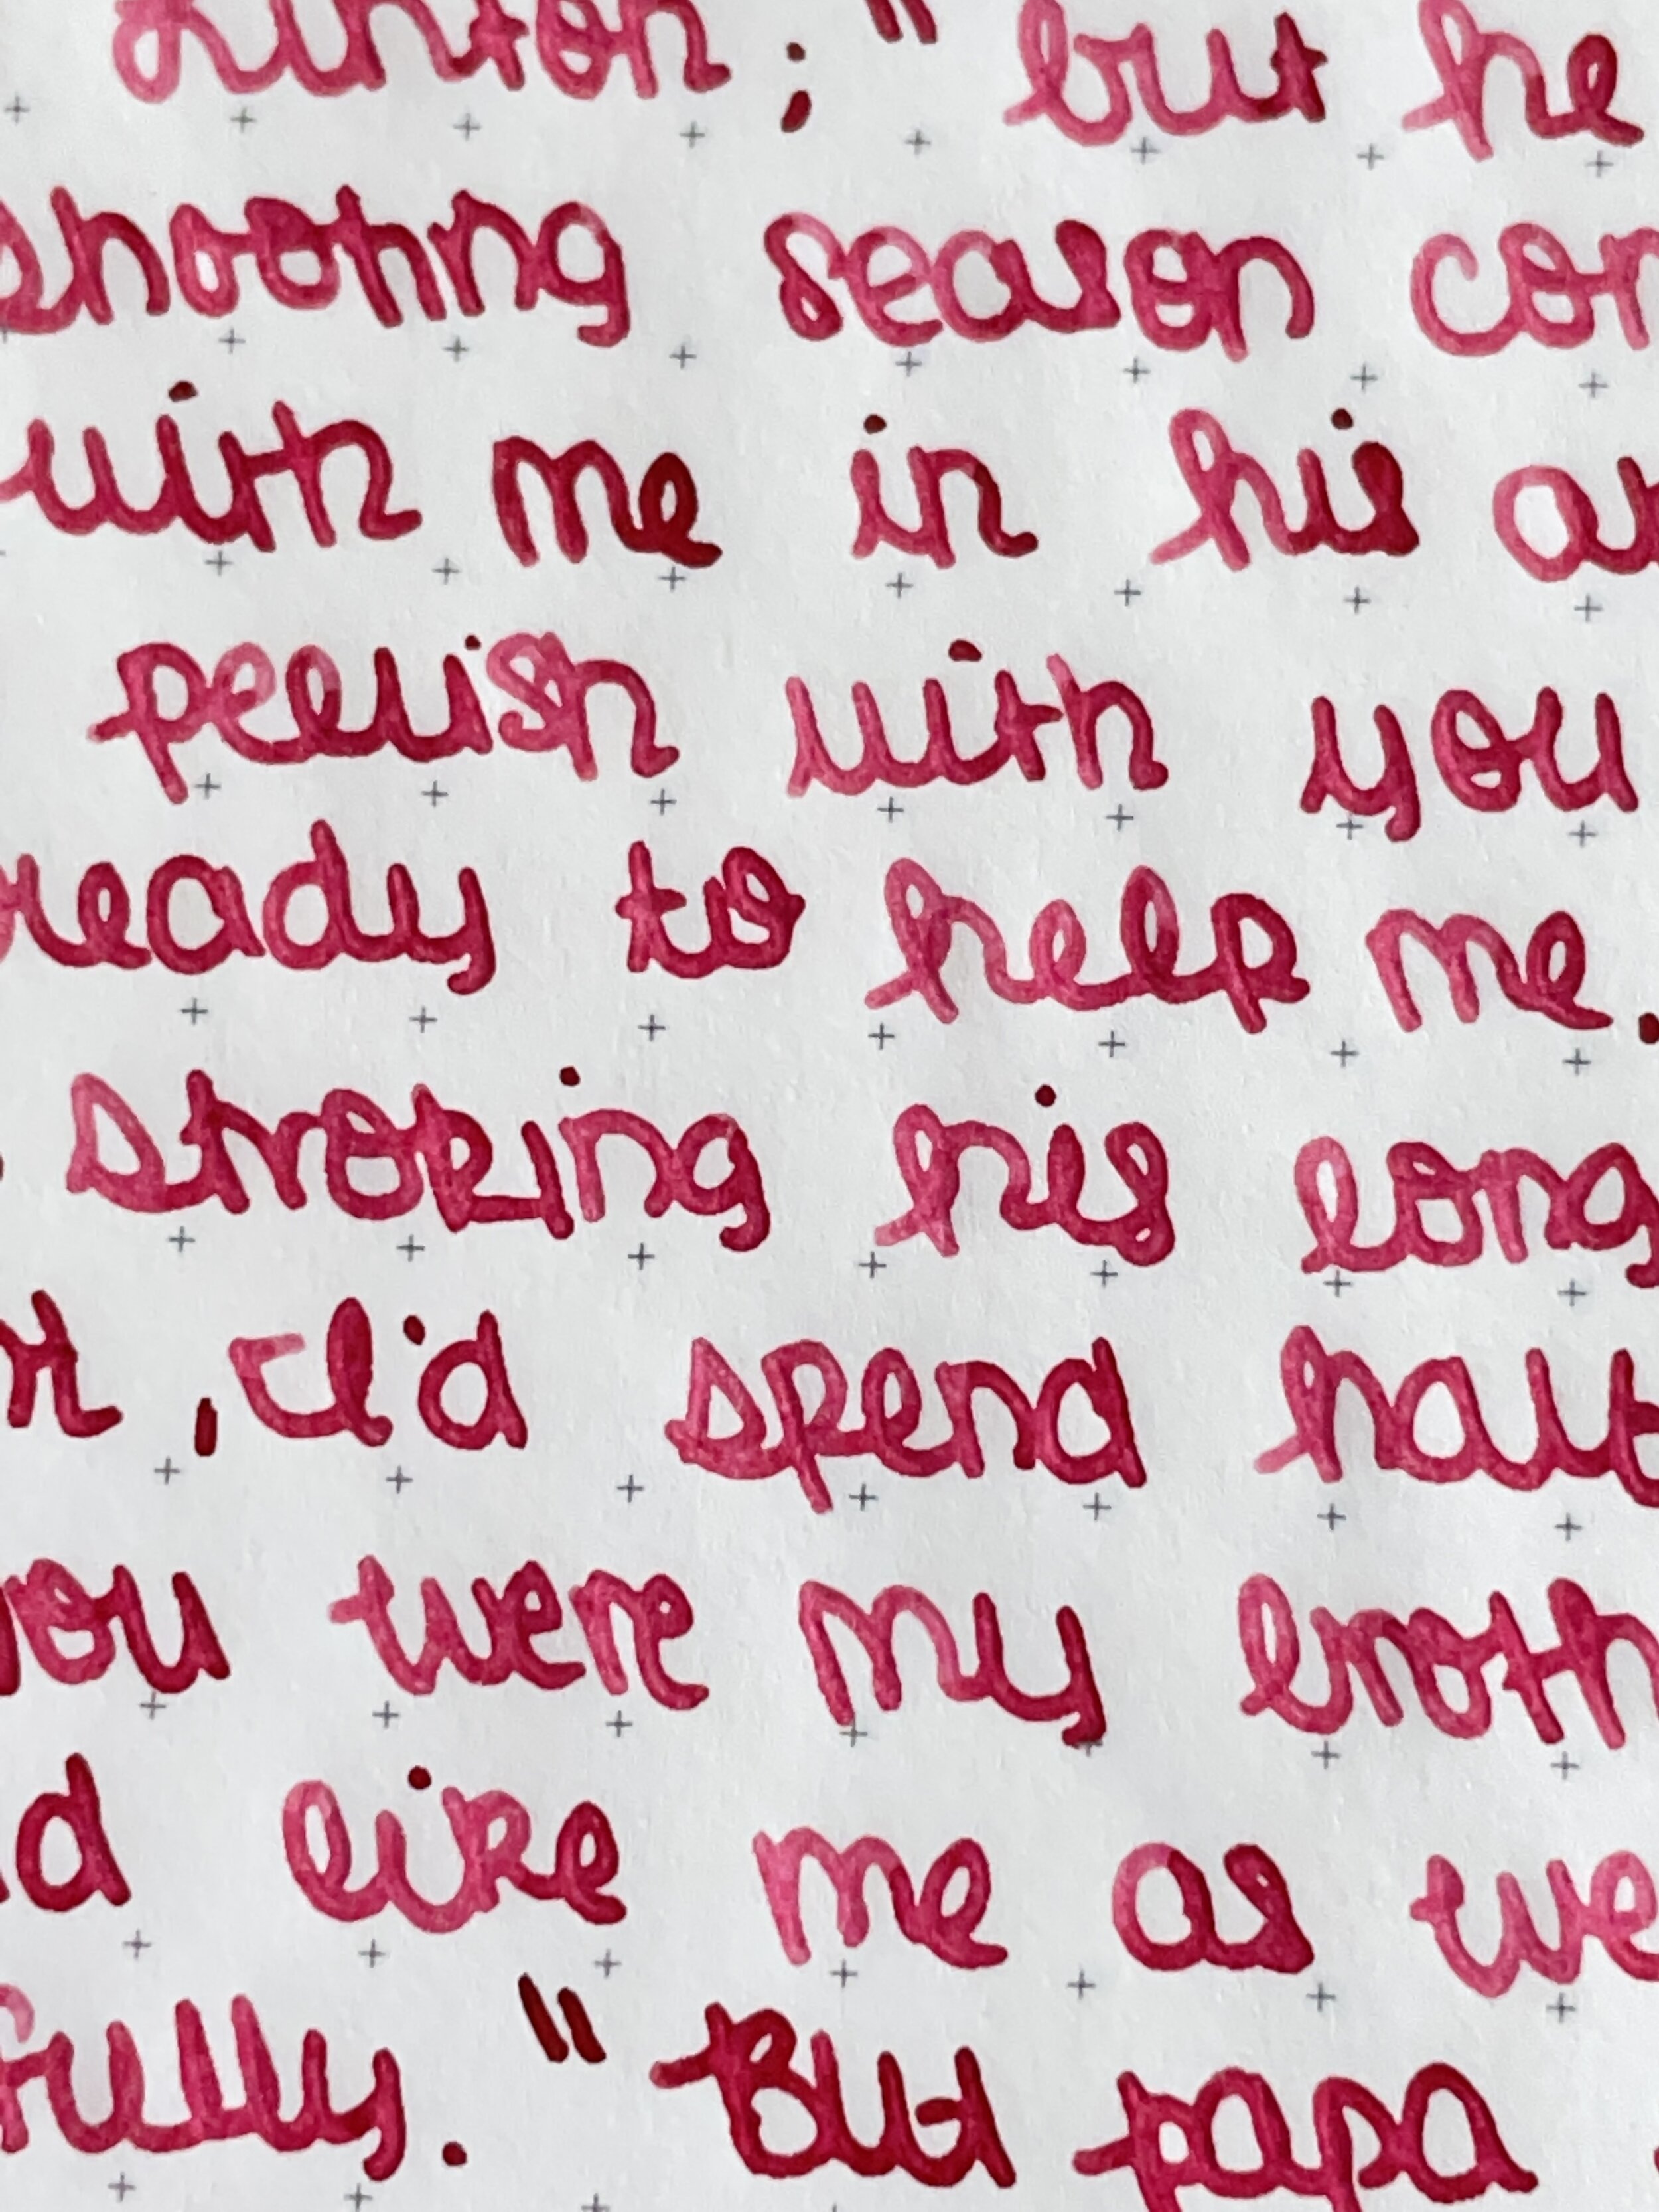 Linton;" but he
shooting season com
with me in his ab
peevish with you
ready to help me.
stroking his long
nt, I'd spend half
you were my broth
d like me as we
fully. "But papa